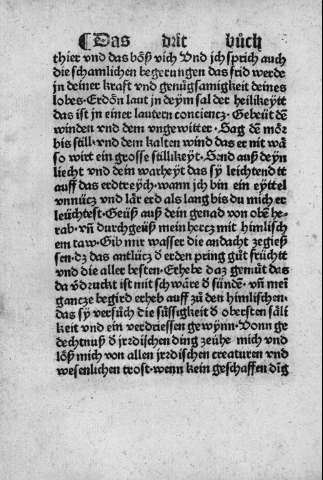 ¶ Das drit bůch
thier vnd das bőß vich Vnd jch sprich auch
die schamlichen begerungen das frid werde
in deiner kraft vnd genůgsamigkeit deines
lobes · Erdőn laut in deym sal der heilikeytt
das ist in einer lautern concienc3 · Gebeüt dē
winden vnd dem vngewitter · Sag dem mőr
bis still · vnd dem kalten wind das er nit wā
so wirt ein grosse stillikeyt · Send auß deyn
liecht vnd dein warheyt das sy leichtend it
auff das erdtreych · wann jch bin ein eyttel
vnnücz vnd lār erd als lang bis du mich er
leüchtest · Geüß auß dein genad von obē he-
rab · vn̄ durchgeüß mein hercz mit himlisch
em taw · Gib mit wasser die andacht zegieß
sen · dz das antlücz đ erden pring gůt frücht
vnd die aller besten · Erhebe daz gemüt das
da v̈druckt ist mit schwāre đ sündē · vn̄ mei
gancze begird erheb auff zů den himlischen ·
das sy versůch die sůssigkeit đ obersten sāli
keit vnd ein verdriessen gewynn · Vonn ge
dechtnuß đ irrdischen ding zeühe mich vnd
lőß mich von allen jrrdischen creaturen vnd
wesenlichen trost · wenn kein geschaffen dīg